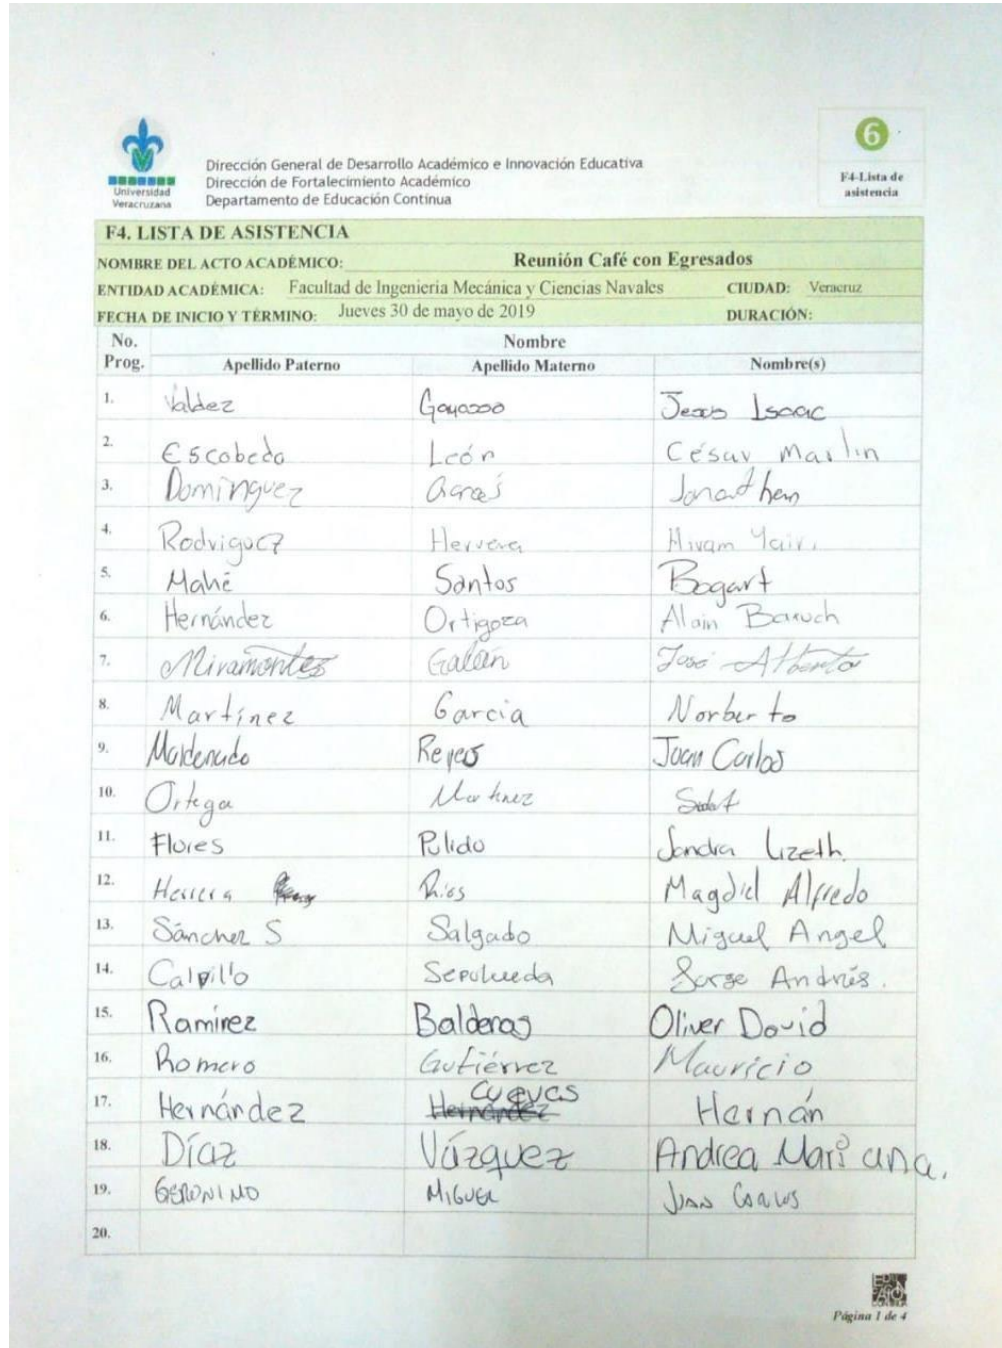 Universidad
Veracruzana
Dirección General de Desarrollo Académico e Innovación Educativa
Dirección de Fortalecimiento Académico
Departamento de Educación Continua
6
F4-Lista de
asistencia
F4. LISTA DE ASISTENCIA
NOMBRE DEL ACTO ACADÉMICO: Reunión Café con Egresados
ENTIDAD ACADÉMICA: Facultad de Ingenieria Mecánica y Ciencias Navales CIUDAD: Veracruz
FECHA DE INICIO Y TÉRMINO: Jueves 30 de mayo de 2019 DURACIÓN:
No. Prog. Nombre
Apellido Paterno Apellido Materno Nombre(s)
1. Valdez Gayosso Jesus Isaac
2. Escobedo León César Marlin
3. Domínguez Jonathan
4. Rodriguez Herrera Hiram Yair
5. Mahé Santos Bogart
6. Hernández Ortigoza Alain Baruch
7. Miramontes Galán José Alberto
8. Martínez Garcia Norberto
9. Maldonado Reyes Juan Carlos
10. Ortega Martinez
11. Flores Pulido Sandra Lizeth.
12. Herrera Ríos Magdiel Alfredo
13. Sánchez S Salgado Miguel Angel
14. Calvillo Sepulveda Jorge Andrés.
15. Ramírez Balderas Oliver David
16. Romero Gutiérrez Mauricio
17. Hernández Hernández Cuevas Hernán
18. Díaz Vázquez Andrea Mariana.
19. GERONIMO MIGUEL JUAN CARLOS
20.
Página 1 de 4